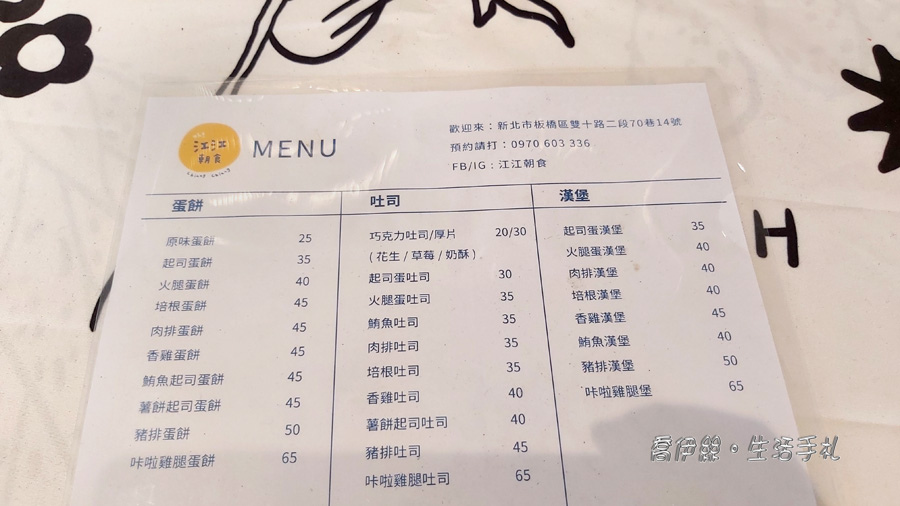 江江
朝食
MENU
歡迎來：新北市板橋區雙十路二段70巷14號
預約請打：0970 603 336
FB/IG：江江朝食
蛋餅
原味蛋餅 25
起司蛋餅 35
火腿蛋餅 40
培根蛋餅 45
肉排蛋餅 45
香雞蛋餅 45
鮪魚起司蛋餅 45
薯餅起司蛋餅 45
豬排蛋餅 50
咔啦雞腿蛋餅 65
吐司
巧克力吐司/厚片 20/30
(花生/草莓/奶酥)
起司蛋吐司 30
火腿蛋吐司 35
鮪魚吐司 35
肉排吐司 35
培根吐司 35
香雞吐司 40
薯餅起司吐司 40
豬排吐司 45
咔啦雞腿吐司 65
漢堡
起司蛋漢堡 35
火腿蛋漢堡 40
肉排漢堡 40
培根漢堡 40
香雞漢堡 45
鮪魚漢堡 40
豬排漢堡 50
咔啦雞腿堡 65
H
喬伊絲。生活手札